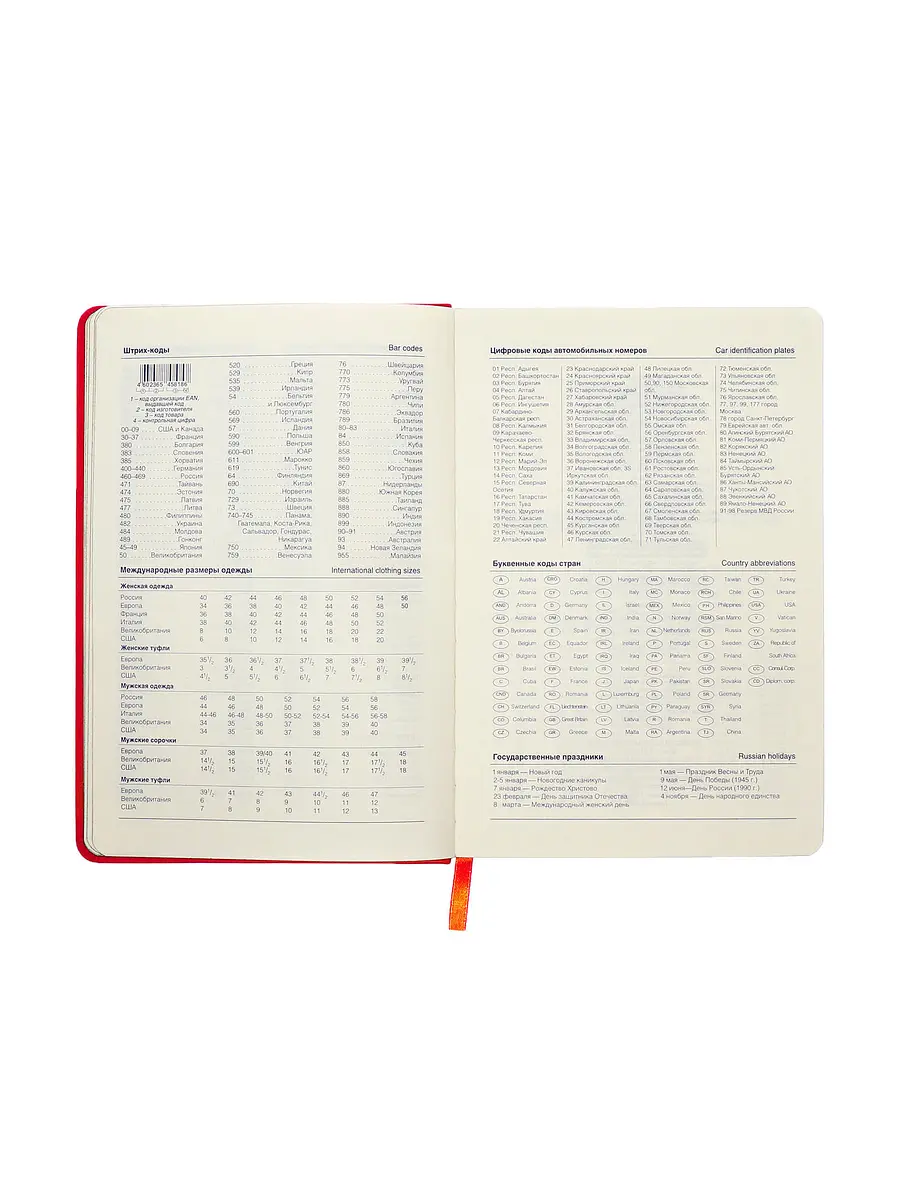 Штрих-коды Bar codes
4 602365 458186
1 – код организации EAN,
выдавшей код
2 – код изготовителя
3 – код товара
4 – контрольная цифра
00-09 США и Канада
30-37 Франция
380 Болгария
383 Словения
385 Хорватия
400-440 Германия
460-469 Россия
471 Тайвань
474 Эстония
475 Латвия
477 Литва
480 Филиппины
482 Украина
484 Молдова
489 Гонконг
45-49 Япония
50 Великобритания
520 Греция
529 Кипр
535 Мальта
539 Ирландия
54 Бельгия
и Люксембург
560 Португалия
569 Исландия
57 Дания
590 Польша
599 Венгрия
600-601 ЮАР
611 Марокко
619 Тунис
64 Финляндия
690 Китай
70 Норвегия
729 Израиль
73 Швеция
740-745 Панама,
Гватемала, Коста-Рика,
Сальвадор, Гондурас,
Никарагуа
750 Мексика
759 Венесуэла
76 Швейцария
770 Колумбия
773 Уругвай
775 Перу
779 Аргентина
780 Чили
786 Эквадор
789 Бразилия
80-83 Италия
84 Испания
850 Куба
858 Словакия
859 Чехия
860 Югославия
869 Турция
87 Нидерланды
880 Южная Корея
885 Таиланд
888 Сингапур
890 Индия
899 Индонезия
90-91 Австрия
93 Австралия
94 Новая Зеландия
955 Малайзия
Международные размеры одежды International clothing sizes
Женская одежда
Россия 40 42 44 46 48 50 52 54 56
Европа 34 36 38 40 42 44 46 48 50
Франция 36 38 40 42 44 46 48 50
Италия 38 40 42 44 46 48 50 52
Великобритания 8 10 12 14 16 18 20 22
США 6 8 10 12 14 16 18 20
Женские туфли
Европа 35 1/2 36 36 1/2 37 37 1/2 38 38 1/2 39 39 1/2
Великобритания 3 3 1/2 4 4 1/2 5 5 1/2 6 6 1/2 7
США 4 1/2 5 5 1/2 6 6 1/2 7 7 1/2 8 8 1/2
Мужская одежда
Россия 46 48 50 52 54 56 58
Европа 44 46 48 50 52 54 56
Италия 44-46 46-48 48-50 50-52 52-54 54-56 56-58
Великобритания 34 35 36 37 38 39 40
США 34 35 36 37 38 39 40
Мужские сорочки
Европа 37 38 39/40 41 42 43 44 45
Великобритания 14 1/2 15 15 1/2 16 16 1/2 17 17 1/2 18
США 14 1/2 15 15 1/2 16 16 1/2 17 17 1/2 18
Мужские туфли
Европа 39 1/2 41 42 43 44 1/2 46 47
Великобритания 6 7 8 9 10 11 12
США 7 8 9 10 11 12 13
Цифровые коды автомобильных номеров Car identification plates
01 Респ. Адыгея
02 Респ. Башкортостан
03 Респ. Бурятия
04 Респ. Алтай
05 Респ. Дагестан
06 Респ. Ингушетия
07 Кабардино
Балкарская респ.
08 Респ. Калмыкия
09 Карачаево
Черкесская респ.
10 Респ. Карелия
11 Респ. Коми
12 Респ. Марий-Эл
13 Респ. Мордовия
14 Респ. Саха
15 Респ. Северная
Осетия
16 Респ. Татарстан
17 Респ. Тува
18 Респ. Удмуртия
19 Респ. Хакасия
20 Чеченская респ.
21 Респ. Чувашия
22 Алтайский край
23 Краснодарский край
24 Красноярский край
25 Приморский край
26 Ставропольский край
27 Хабаровский край
28 Амурская обл.
29 Архангельская обл.
30 Астраханская обл.
31 Белгородская обл.
32 Брянская обл.
33 Владимирская обл.
34 Волгоградская обл.
35 Вологодская обл.
36 Воронежская обл.
37 Ивановская обл. 38
Иркутская обл.
39 Калининградская обл.
40 Калужская обл.
41 Камчатская обл.
42 Кемеровская обл.
43 Кировская обл.
44 Костромская обл.
45 Курганская обл.
46 Курская обл.
47 Ленинградская обл.
48 Липецкая обл.
49 Магаданская обл.
50,90, 150 Московская
обл.
51 Мурманская обл.
52 Нижегородская обл.
53 Новгородская обл.
54 Новосибирская обл.
55 Омская обл.
56 Оренбургская обл.
57 Орловская обл.
58 Пензенская обл.
59 Пермская обл.
60 Псковская обл.
61 Ростовская обл.
62 Рязанская обл.
63 Самарская обл.
64 Саратовская обл.
65 Сахалинская обл.
66 Свердловская обл.
67 Смоленская обл.
68 Тамбовская обл.
69 Тверская обл.
70 Томская обл.
71 Тульская обл.
72 Тюменская обл.
73 Ульяновская обл.
74 Челябинская обл.
75 Читинская обл.
76 Ярославская обл.
77, 97, 99, 177 город
Москва
78 город Санкт-Петербург
79 Еврейская авт. обл.
80 Агинский Бурятский АО
81 Коми-Пермяцкий АО
82 Корякский АО
83 Ненецкий АО
84 Таймырский АО
85 Усть-Ордынский
Бурятский АО
86 Ханты-Мансийский АО
87 Чукотский АО
88 Эвенкийский АО
89 Ямало-Ненецкий АО
91-98 Резерв МВД России
Буквенные коды стран Country abbreviations
A Austria CRO Croatia H Hungary MA Marocco RC Taiwan TR Turkey
AL Albania CY Cyprus I Italy MC Monaco RCH Chile UA Ukraine
AND Andorra D Germany IL Israel MEX Mexico PH Philippines USA USA
AUS Australia DM Denmark IND India N Norway RSM San Marino V Vatican
BY Byelorussia E Spain IR Iran NL Netherlands RUS Russia YV Yugoslavia
B Belgium EC Equador IRL Ireland P Portugal S Sweden ZA Republic of
BR Bulgaria ET Egypt IRQ Iraq PA Panama SF Finland South Africa
BR Brasil EW Estonia IS Iceland PE Peru SLO Slovenia CC Consul.Corp.
C Cuba F France J Japan PK Pakistan SR Slovakia CD Diplom. corp.
CND Canada RO Romania L Luxemburg PL Poland SR Germany
CH Switzerland FL Liechtenstein LT Lithuania PY Paraguay SYR Syria
CO Columbia GB Great Britain LV Latvia R Romania T Thailand
CZ Czechia GR Greece M Malta RA Argentina TJ China
Государственные праздники Russian holidays
1 января — Новый год
2-5 января — Новогодние каникулы
7 января — Рождество Христово
23 февраля — День защитника Отечества
8 марта — Международный женский день
1 мая — Праздник Весны и Труда
9 мая — День Победы (1945 г.)
12 июня—День России (1990 г.)
4 ноября — День народного единства